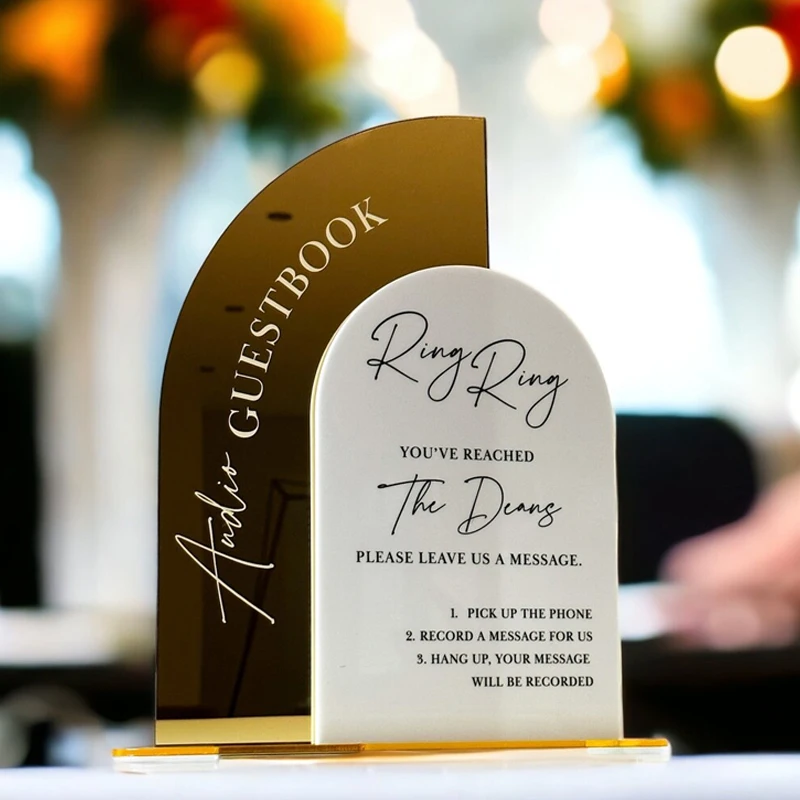 Audio GUESTBOOK
Ring Ring
YOU'VE REACHED
The Deans
PLEASE LEAVE US A MESSAGE.
1. PICK UP THE PHONE
2. RECORD A MESSAGE FOR US
3. HANG UP, YOUR MESSAGE
WILL BE RECORDED